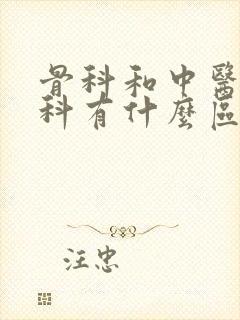 骨科和中醫
科有什麼區
汪忠